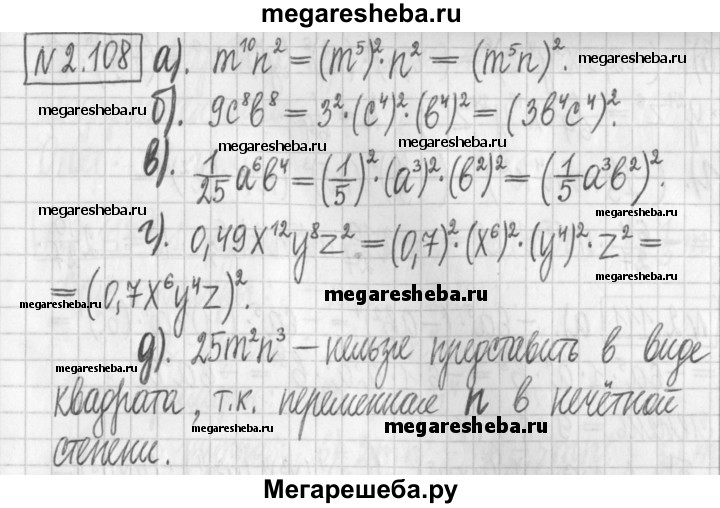 megaresheba.ru
№2.108 а). m¹⁰n² = (m⁵)²·n² = (m⁵n)².
megaresheba.ru megaresheba.ru
б). 9c⁸b⁸ = 3²·(c⁴)²·(b⁴)² = (3b⁴c⁴)².
megaresheba.ru megaresheba.ru
в). 1/25 a⁶b⁴ = (1/5)²·(a³)²·(b²)² = (1/5 a³b²)².
megaresheba.ru megaresheba.ru
г). 0,49x¹²y⁸z² = (0,7)²·(x⁶)²·(y⁴)²·z² =
= (0,7x⁶y⁴z)².
megaresheba.ru megaresheba.ru megaresheba.ru
д). 25m²n³ – нельзя представить в виде
megaresheba.ru megaresheba.ru
квадрата, т.к. переменная n в нечётной
megaresheba.ru megaresheba.ru
степени.
Мегарешеба.ру